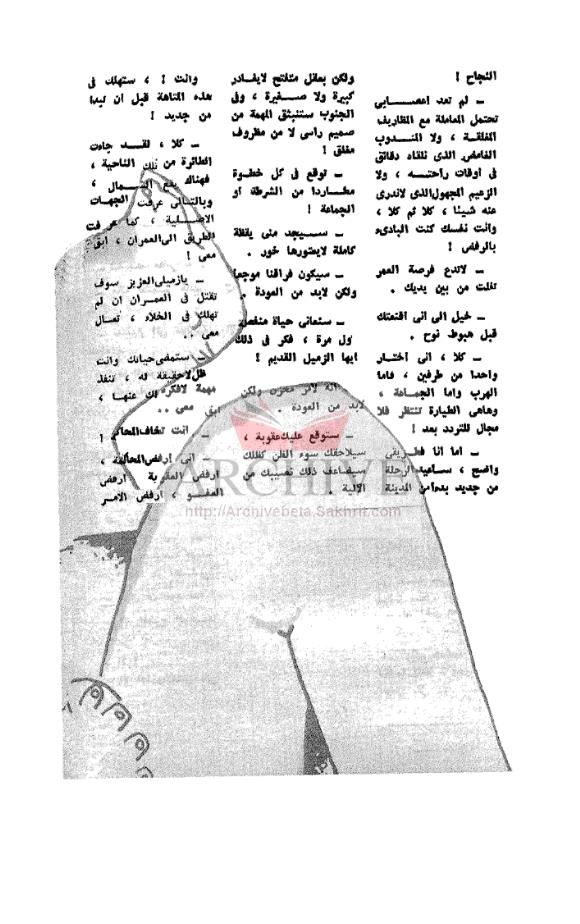 النجاح !
ـ لم تعد اعصـــابى
تحتمل المعاملة مع المظاريف
المغلقة ، ولا المنــدوب
الغامض الذى نلقاه دقائق
فى أوقات راحتــه ، ولا
الزعيم المجهول الذى لاندرى
عنه شيئا ، كلا ثم كلا ،
وانت نفسك كنت البادىء
بالرفض !
ـ لاتدع فرصة العمر
تفلت من بين يديك .
ـ خيل الى انى اقنعتك
قبل هبوط نوح .
ـ كلا ، انى اختــار
واحدا من طرفين ، فاما
الهرب واما الجماعة ،
وهاهى الطيارة تنتظر فلا
مجال للتردد بعد !
ـ اما انا فطريقى
واضح ، ساعيد الرحلة
من جديد بدءا من المدينة
ولكن بعقل متفتح لايغادر
كبيرة ولا صـــغيرة ، وفى
الجنوب ستنبثق المهمة من
صميم راسى لا من مظروف
مغلق !
ـ توقع فى كل خطــوة
مطــاردا من الشرطة او
الجماعة !
ـ ســـيجد منى يقظة
كاملة لايعتورها خور .
ـ سيكون فراقنا موجعا
ولكن لابد من العودة .
ـ ستعانى حياة منفصلة
اول مرة ، فكر فى ذلك
ايها الزميل القديم !
ـ انه لامر محزن ولكن
لابد من العودة .
ـ ستوقع عليك عقوبة ،
سيلاحقك سوء الظن كظلك
سيضاعف ذلك نصيبك من
الالية .
وانت ! ، ستهلك فى
هذه المتاهة قبل ان تبدا
من جديد !
ـ كلا ، لقــد جاءت
الطائرة من تلك الناحية ،
فهناك يقع الشــمال ،
وبالتالى عرفت الجهات
الاصــلية ، كما عرفت
الطريق الى العمران ، ابق
معى !
ـ يازميلى العزيز سوف
تقتل فى العمــران ان لم
تهلك فى الخلاء ، تعــال
معى . .
ـ ستمضى حياتك وانت
ظل لاحقيقة له ، تنفذ
مهمة لافكرة لك عنها ،
ابق معى . .
ـ انت تخاف المحاكمة !
ـ انى ارفض المحاكمة ،
ارفض العقوبة ، ارفض
العفــو ، ارفض الامر
ARCHIVE
http://Archivebeta.Sakhrit.com